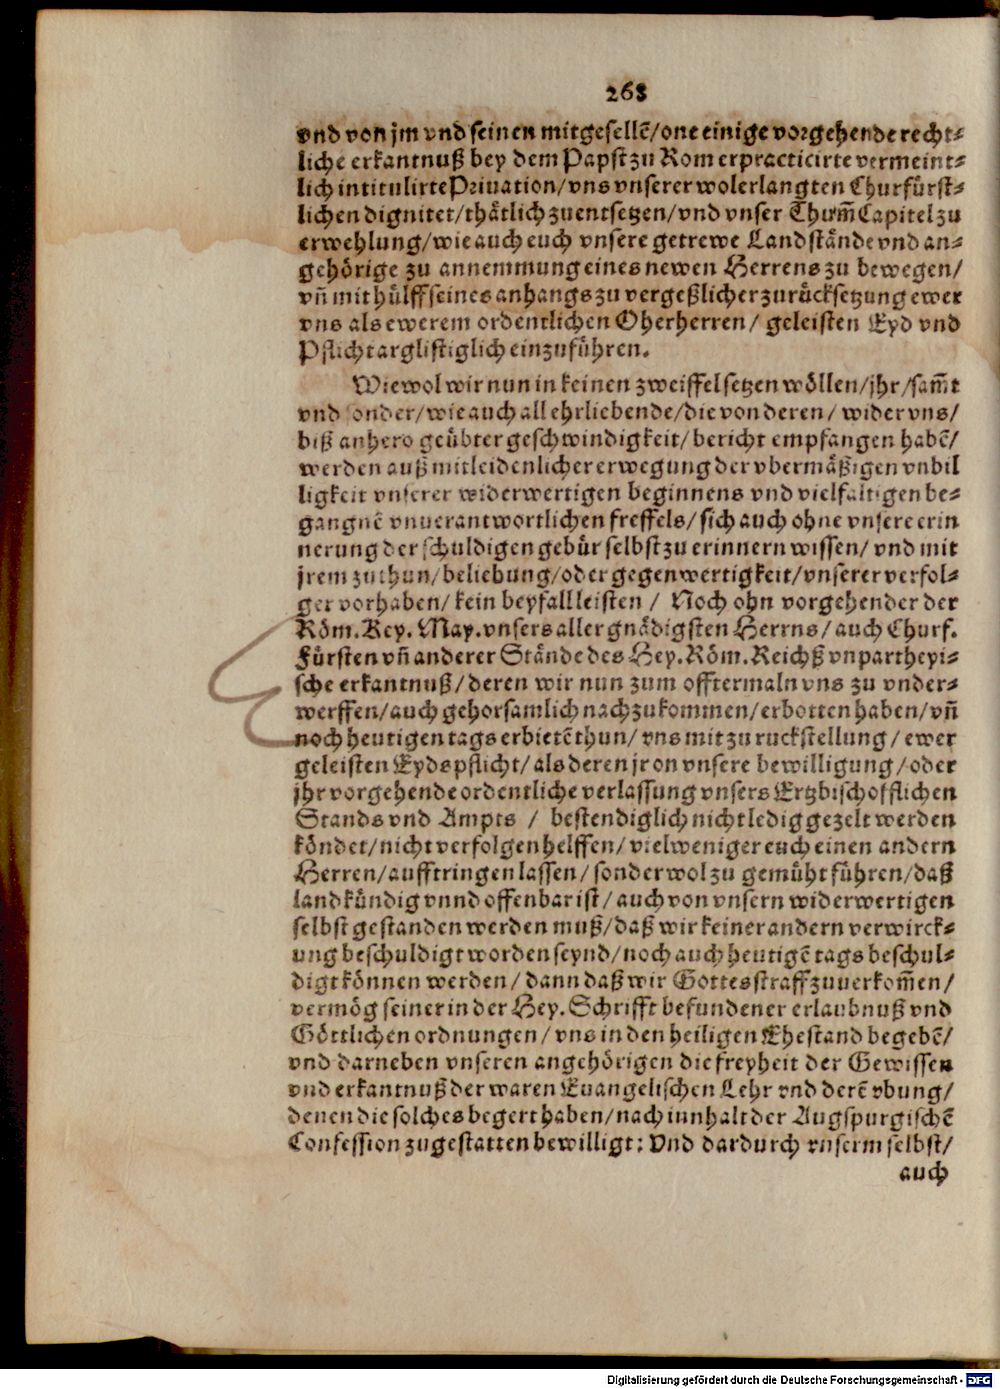 268
vnd von jm vnd seinen mitgesellē/one einige vorgehende recht-
liche erkantnuß bey dem Papst zu Rom erpracticirte vermeint-
lich intitulirte Priuation/vns vnserer wolerlangten Churfürst-
lichen dignitet/thätlich zuentsetzen/vnd vnser Thum̃Capitel zu
erwehlung/wie auch euch vnsere getrewe Landstände vnd an-
gehörige zu annemmung eines newen Herrens zu bewegen/
vñ mit hülff seines anhangs zu vergeßlicher zurücksetzung ewer
vns als ewerem ordentlichen Oherherren/ geleisten Eyd vnd
Pflicht arglistiglich einzuführen.
Wiewol wir nun in keinen zweiffel setzen wöllen/jhr/sam̃t
vnd sonder/wie auch all ehrliebende/die von deren/ wider vns/
biß anhero geübter geschwindigkeit/bericht empfangen habē/
werden auß mitleidenlicher erwegung der vbermäßigen vnbil
ligkeit vnserer widerwertigen beginnens vnd vielfaltigen be-
gangnē vnuerantwortlichen freffels/sich auch ohne vnsere erin
nerung der schuldigen gebür selbst zu erinnern wissen/ vnd mit
jrem zuthun/beliebung/oder gegenwertigkeit/vnserer verfol-
ger vorhaben/kein beyfall leisten / Noch ohn vorgehender der
Röm. Key. May. vnsers aller gnädigsten Herrns/ auch Churf.
Fürsten vñ anderer Stände des Hey. Röm. Reichß vnpartheyi-
sche erkantnuß/deren wir nun zum offtermaln vns zu vnder-
werffen/auch gehorsamlich nachzukommen/erbotten haben/vñ
noch heutigen tags erbietē thun/vns mit zu ruckstellung/ewer
geleisten Eydspflicht/als deren jr on vnsere bewilligung/oder
jhr vorgehende ordentliche verlassung vnsers Ertzbischofflichen
Stands vnd Ampts / bestendiglich nicht ledig gezelt werden
köndet/nicht verfolgen helffen/vielweniger euch einen andern
Herren/aufftringen lassen/sonder wol zu gemüht führen/daß
landkündig vnnd offenbar ist/auch von vnsern widerwertigen
selbst gestanden werden muß/daß wir keiner andern verwirck-
ung beschuldigt worden seynd/noch auch heutigē tags beschul-
digt können werden/dann daß wir Gottes straff zuuerkom̃en/
vermög seiner in der Hey. Schrifft befundener erlaubnuß vnd
Göttlichen ordnungen/vns in den heiligen Ehestand begebē/
vnd darneben vnseren angehörigen die freyheit der Gewissen
vnd erkantnuß der waren Euangelischen Lehr vnd derē vbung/
denen die solches begert haben/nach innhalt der Augspurgischē
Confession zugestatten bewilligt: Vnd dardurch vnserm selbst/
auch
Digitalisierung gefördert durch die Deutsche Forschungsgemeinschaft - DFG